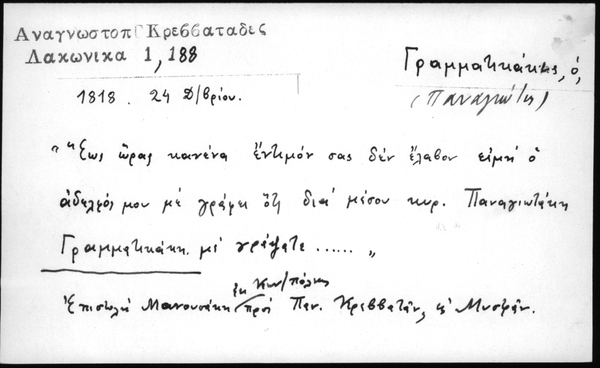 Αναγνωστοπ Κρεββαταδες
Λακωνικα 1, 188
Γραμματικάκης, ὁ,
(Παναγιώτης)
1818. 24 Δ/βρίου.
"Ἕως ὥρας κανένα ἔντιμόν σας δέν ἔλαβον εἰμή ὁ
ἀδελφός μου μέ γράφει ὅτι διά μέσου κυρ. Παναγιωτάκη
Γραμματικάκη μέ γράψατε ...... "
ἐκ Κων/πόλης
Ἐπιστολή Μανουσάκη πρός Παν. Κρεββατᾶν, εἰς Μυσ